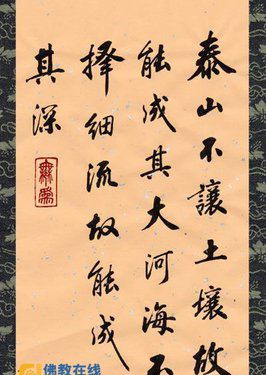 泰山不讓土壤故
能成其大河海不
擇細流故能成
其深
無為
佛教在线